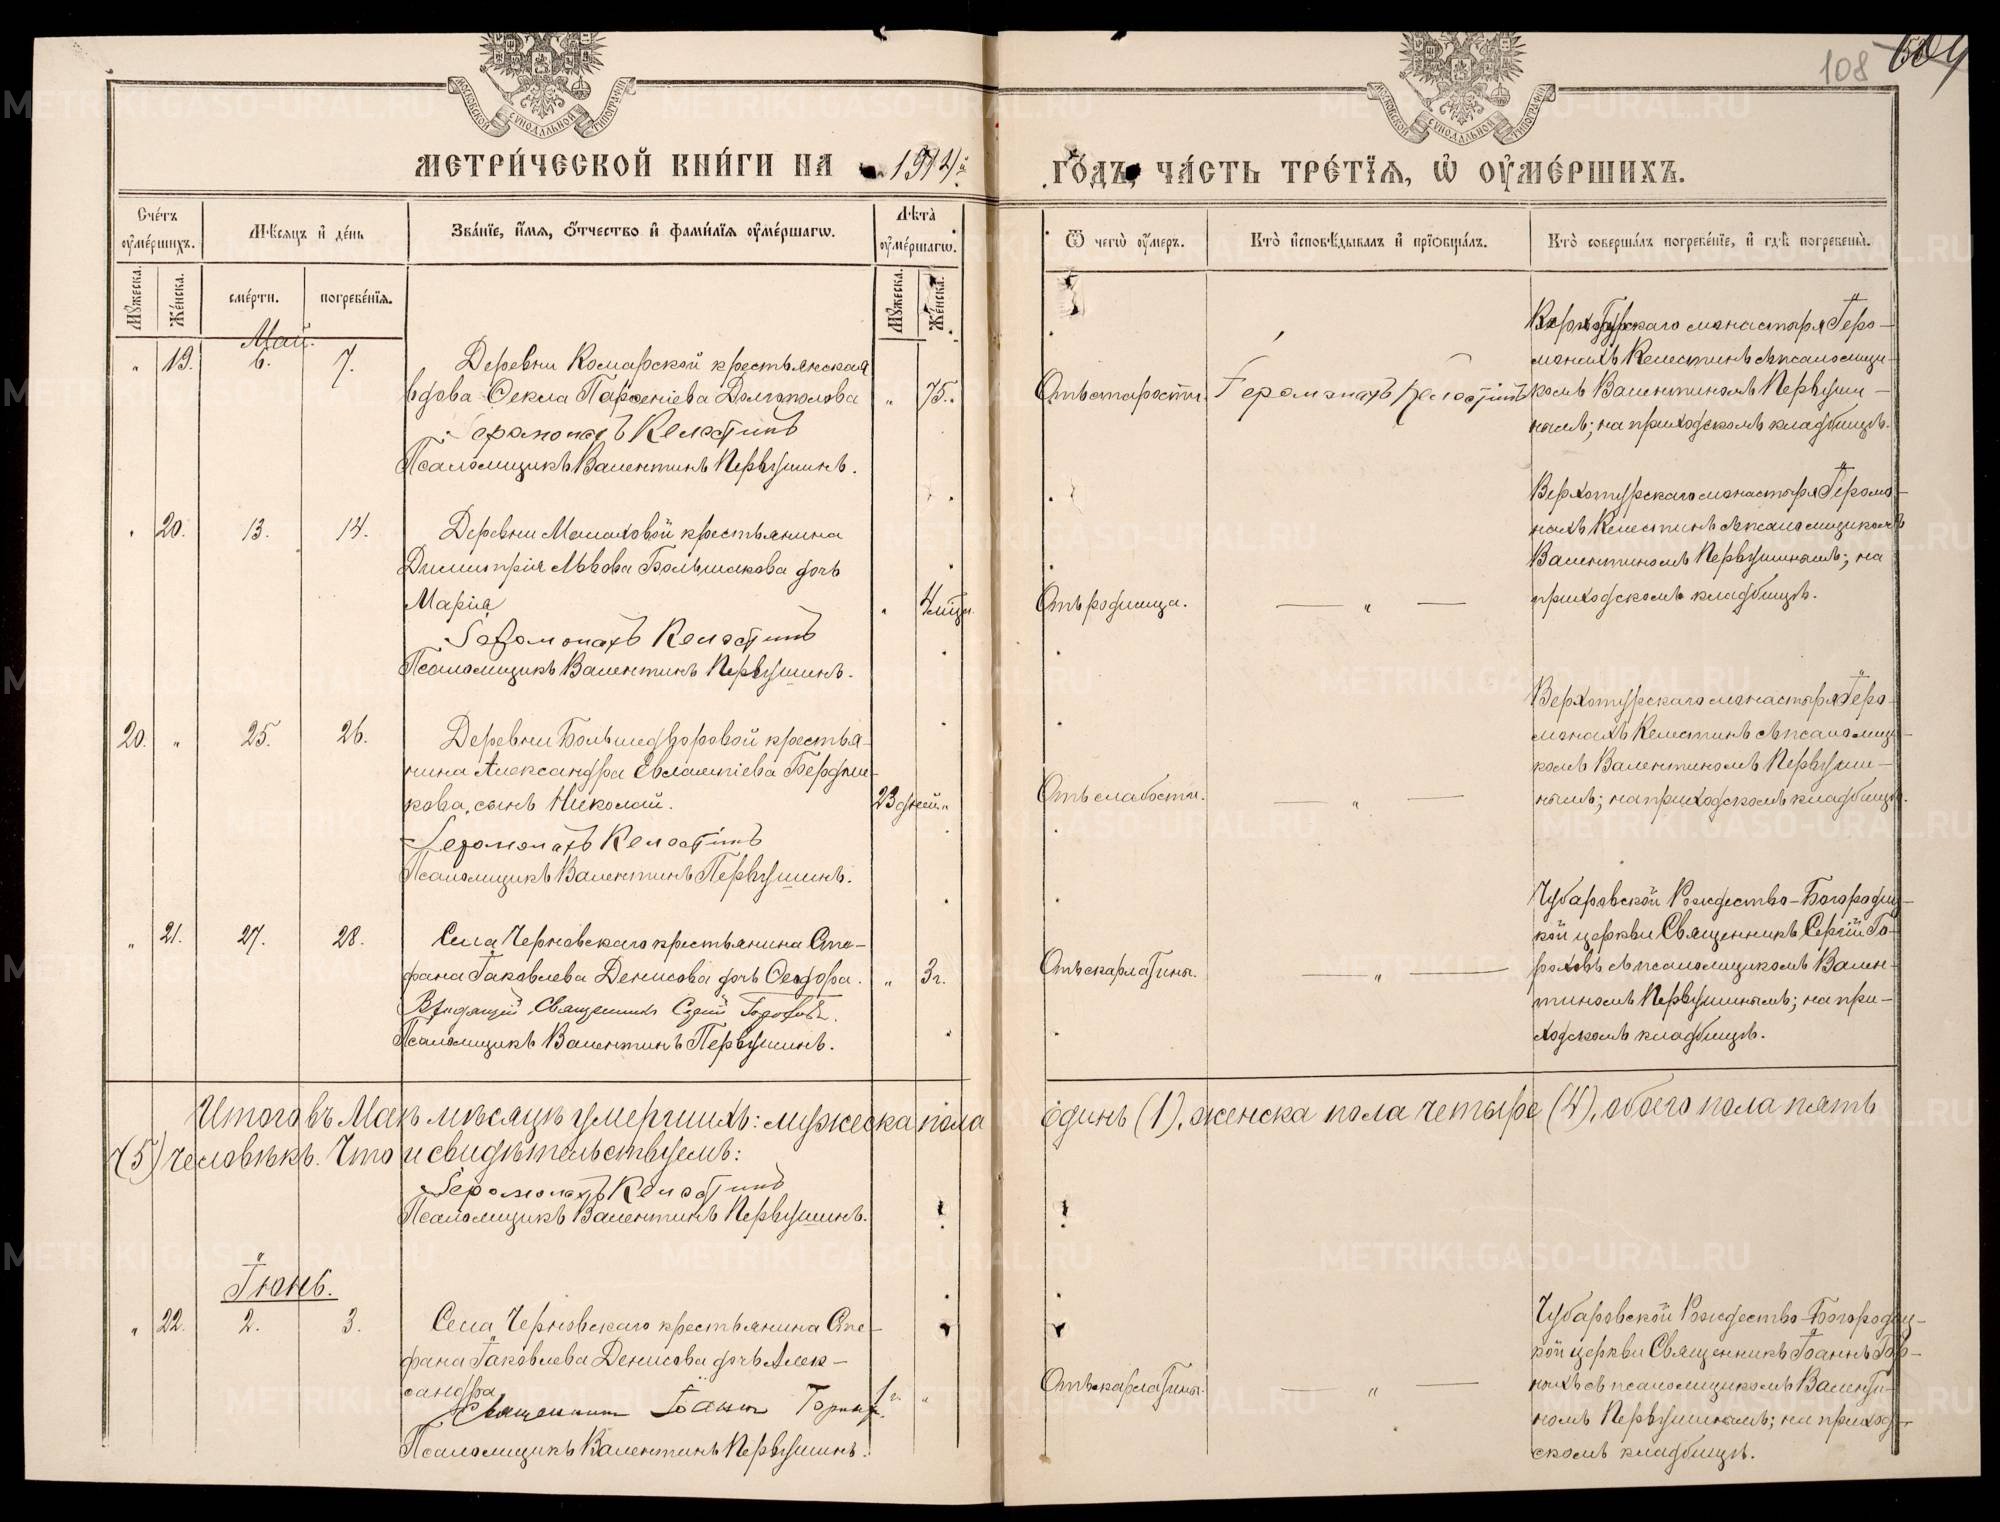 108 504
МОСКОВСКОЙ СУНОДАЛЬНОЙ ТИПОГРАФІИ
МОСКОВСКОЙ СУНОДАЛЬНОЙ ТИПОГРАФІИ
МЕТРИ́ЧЕСКОЙ КНИ́ГИ НА 1914й ГО́ДЪ, ЧА́СТЬ ТРЕ́ТІѦ, Ѡ҆ ОУ҆МЕ́РШИХЪ.
Сче́тъ оу҆ме́ршихъ.
Мѣ́сѧцъ и҆ де́нь
Зва́нїе, и҆́мѧ, ѻ҆́тчество и҆ фами́лїѧ оу҆ме́ршагѡ.
Лѣ́та оу҆ме́ршагѡ.
Ѿ чегѡ̀ оу҆́меръ.
Кто̀ и҆сповѣ́дывалъ и҆ прїѡбща́лъ.
Кто̀ соверша́лъ погребе́нїе, и҆ гдѣ̀ погребены̀.
Мꙋ́жеска.
Же́нска.
сме́рти.
погребе́нїѧ.
Мꙋ́жеска.
Же́нска.
Май.
" 19. 6. 7.
Деревни Комарской крестьянская
вдова Ѳекла Парѳеніева Долгополова
" 75.
Іеромонахъ Келестинъ
Псаломщикъ Валентинъ Первушинъ.
Отъ старости.
Іеромонахъ Келестинъ
Верхотурскаго монастыря Іеро-
монахъ Келестинъ съ псаломщи-
комъ Валентиномъ Первуши-
нымъ; на приходскомъ кладбищѣ.
" 20. 13. 14.
Деревни Малаховой крестьянина
Димитрія Львова Большакова дочь
Марія
" 4 мѣц.
Іеромонахъ Келестинъ
Псаломщикъ Валентинъ Первушинъ.
Отъ родимца.
— " —
Верхотурскаго монастыря Іеромо-
нахъ Келестинъ съ псаломщикомъ
Валентиномъ Первушинымъ; на
приходскомъ кладбищѣ.
20. " 25. 26.
Деревни Большедворовой крестья-
нина Александра Евлампіева Бердни-
кова, сынъ Николай.
23 дней "
Іеромонахъ Келестинъ
Псаломщикъ Валентинъ Первушинъ.
Отъ слабости.
— " —
Верхотурскаго монастыря Іеро-
монахъ Келестинъ съ псаломщи-
комъ Валентиномъ Первуши-
нымъ; на приходскомъ кладбищѣ.
" 21. 27. 28.
Села Черновскаго крестьянина Сте-
фана Іаковлева Денисова дочь Ѳеодора.
" 3 г.
Священникъ Сергій Гороховъ.
Псаломщикъ Валентинъ Первушинъ.
Отъ скарлатины.
— " —
Чубаровской Рождество-Богородиц-
кой церкви Священникъ Сергій Го-
роховъ съ псаломщикомъ Вален-
тиномъ Первушинымъ; на при-
ходскомъ кладбищѣ.
Итого въ Маѣ мѣсяцѣ умершихъ: мужеска пола одинъ (1), женска пола четыре (4), обоего пола пять
(5) человѣкъ. Что и свидѣтельствуемъ:
Іеромонахъ Келестинъ
Псаломщикъ Валентинъ Первушинъ.
Іюнь.
" 22. 2. 3.
Села Черновскаго крестьянина Сте-
фана Іаковлева Денисова дочь Алек-
сандра
1 г. "
Священникъ Іоаннъ
Псаломщикъ Валентинъ Первушинъ.
Отъ скарлатины.
— " —
Чубаровской Рождество-Богородиц-
кой церкви Священникъ Іоаннъ
съ псаломщикомъ Валенти-
номъ Первушинымъ; на приход-
скомъ кладбищѣ.
METRIKI.GASO-URAL.RU